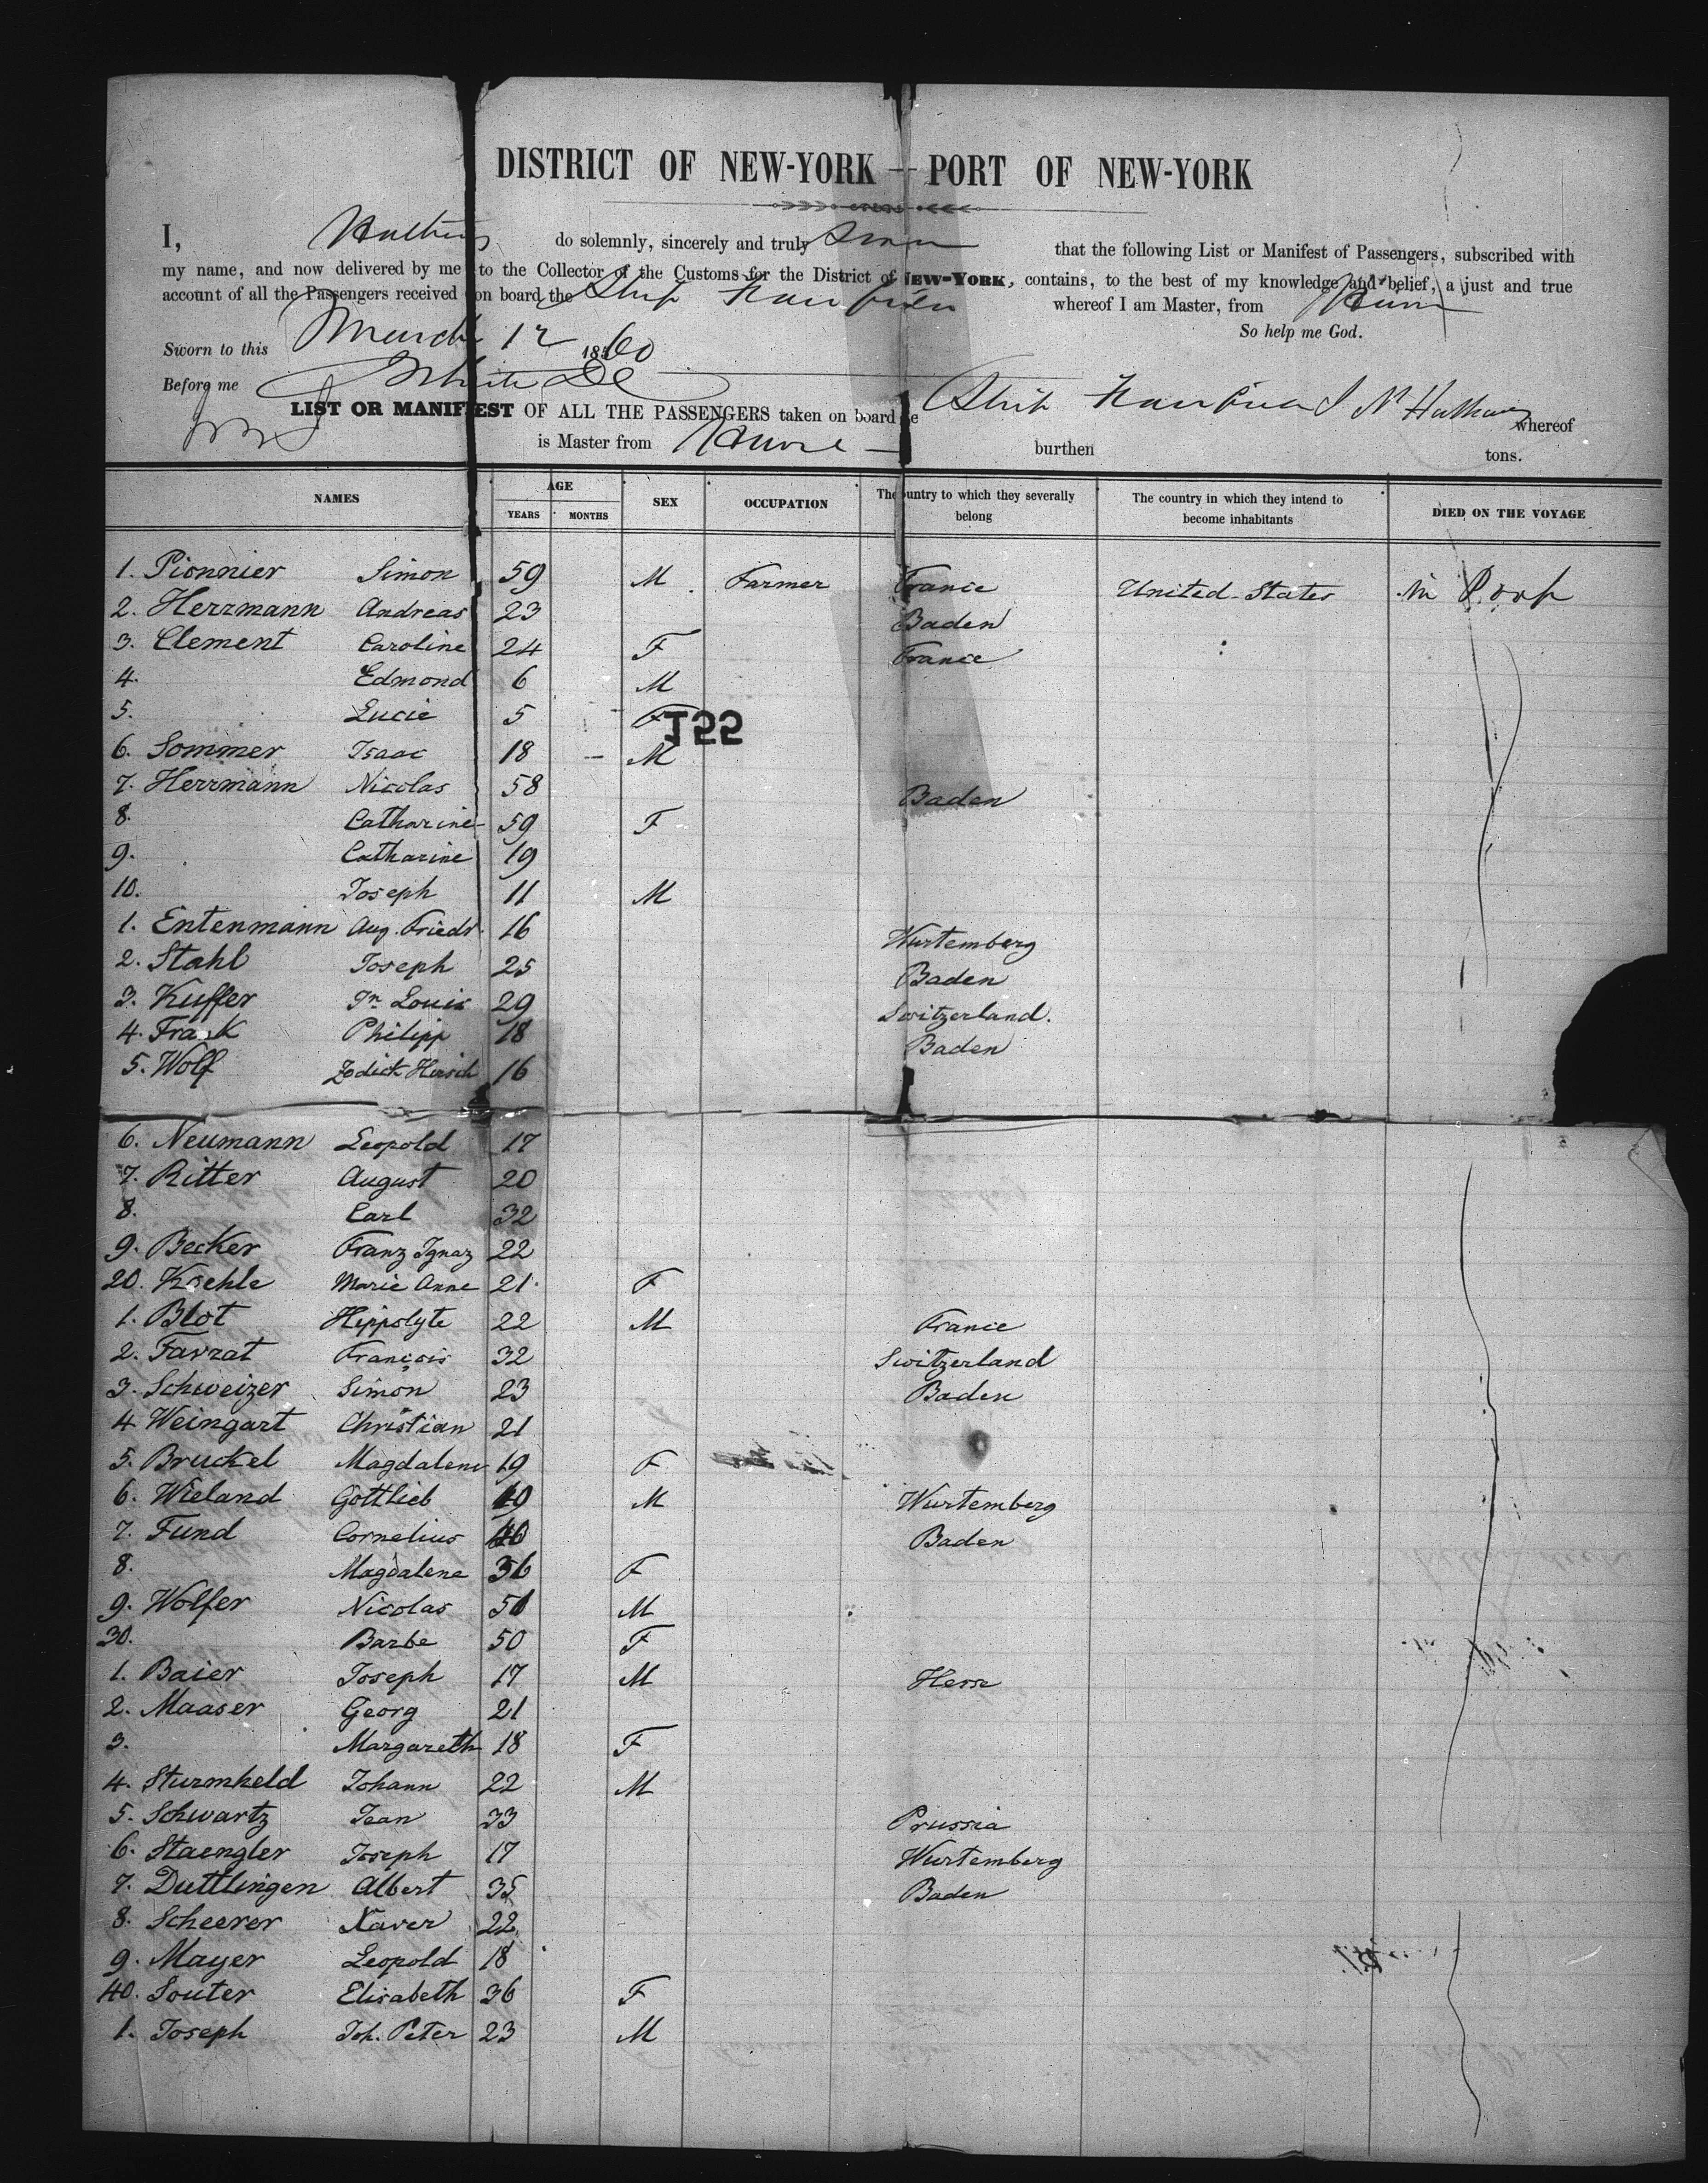 DISTRICT OF NEW-YORK — PORT OF NEW-YORK
I, do solemnly, sincerely and truly that the following List or Manifest of Passengers, subscribed with
my name, and now delivered by me to the Collector of the Customs for the District of NEW-YORK, contains, to the best of my knowledge and belief, a just and true
account of all the Passengers received on board the Ship whereof I am Master, from
So help me God.
Sworn to this March 12 1860
Before me
LIST OR MANIFEST OF ALL THE PASSENGERS taken on board the Ship whereof
is Master from Havre burthen tons.
NAMES AGE YEARS MONTHS SEX OCCUPATION The country to which they severally belong The country in which they intend to become inhabitants DIED ON THE VOYAGE
1. Pionnier Simon 59 M Farmer France United-States
2. Herrmann Andreas 23 Baden
3. Clement Caroline 24 F France
4. Edmond 6 M
5. Lucie 5 F
155
6. Sommer Isaac 18 M
7. Herrmann Nicolas 58 Baden
8. Catharine 59 F
9. Catharine 19
10. Joseph 11 M
1. Entenmann Aug. Friedr. 16 Wurtemberg
2. Stahl Joseph 25 Baden
3. Kuffer Jn Louis 29 Switzerland.
4. Frank Philipp 18 Baden
5. Wolf Zodick Hirsch 16
6. Neumann Leopold 17
7. Ritter August 20
8. Carl 32
9. Becker Franz Ignaz 22
20. Koehle Marie Anne 21 F
1. Blot Hippolyte 22 M France
2. Favrat François 32 Switzerland
3. Schweizer Simon 23 Baden
4 Weingart Christian 21
5. Bruckel Magdalene 19 F
6. Wieland Gottlieb M Wurtemberg
7. Fund Cornelius Baden
8. Magdalene 36 F
9. Wolfer Nicolas 51 M
30. Barbe 50 F
1. Baier Joseph 17 M Hesse
2. Maaser Georg 21
3. Margareth 18 F
4. Sturmheld Johann 22 M
5. Schwartz Jean 33 Prussia
6. Staengler Joseph 17 Wurtemberg
7. Duttlingen Albert 35 Baden
8. Scheerer Xaver 22
9. Mayer Leopold 18
40. Souter Elisabeth 36 F
1. Joseph Joh. Peter 23 M